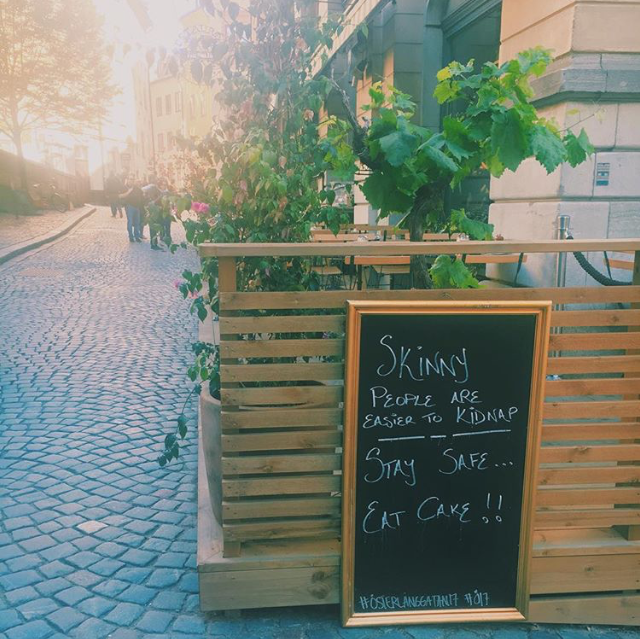 SKINNY
PEOPLE ARE
EASIER TO KIDNAP
STAY SAFE...
EAT CAKE !!
#ÖSTERLÅNGGATAN17 #Ö17